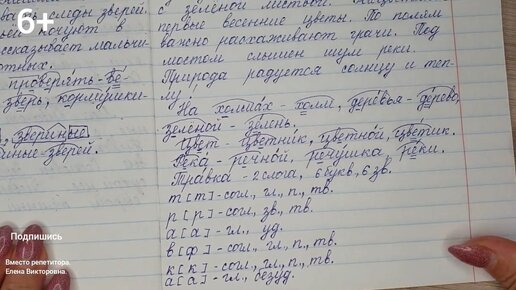 6+
следы зверей.
кочуют в
ссказывает мальчи-
отных.
проверять - Бе-
зверь, кормушки-
, звериные
ные - зверей.
с зелёной листвой.
первые весенние цветы. По полям
важно расхаживают грачи. Под
мостом слышен шум реки.
Природа радуется солнцу и теп-
лу.
На холмах - холм, деревья - дерево,
зеленой - зелень.
Цвет - цветник, цветной, цветик.
Река - речной, речушка, реки.
Травка - 2 слога, 6 букв, 6 зв.
т [т] - согл., гл., п., тв.
р [р] - согл., зв., тв.
а [а] - гл., уд.
в [ф] - согл., гл., п., тв.
к [к] - согл., гл., п., тв.
а [а] - гл., безуд.
Подпишись
Вместо репетитора.
Елена Викторовна.